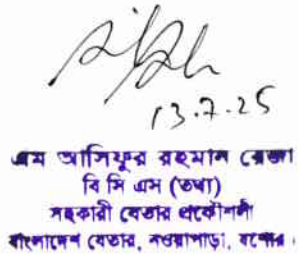 13.7.25
এম আসিফুর রহমান রেজা
বি সি এস (তথ্য)
সহকারী বেতার প্রকৌশলী
বাংলাদেশ বেতার, নওয়াপাড়া, যশোর।